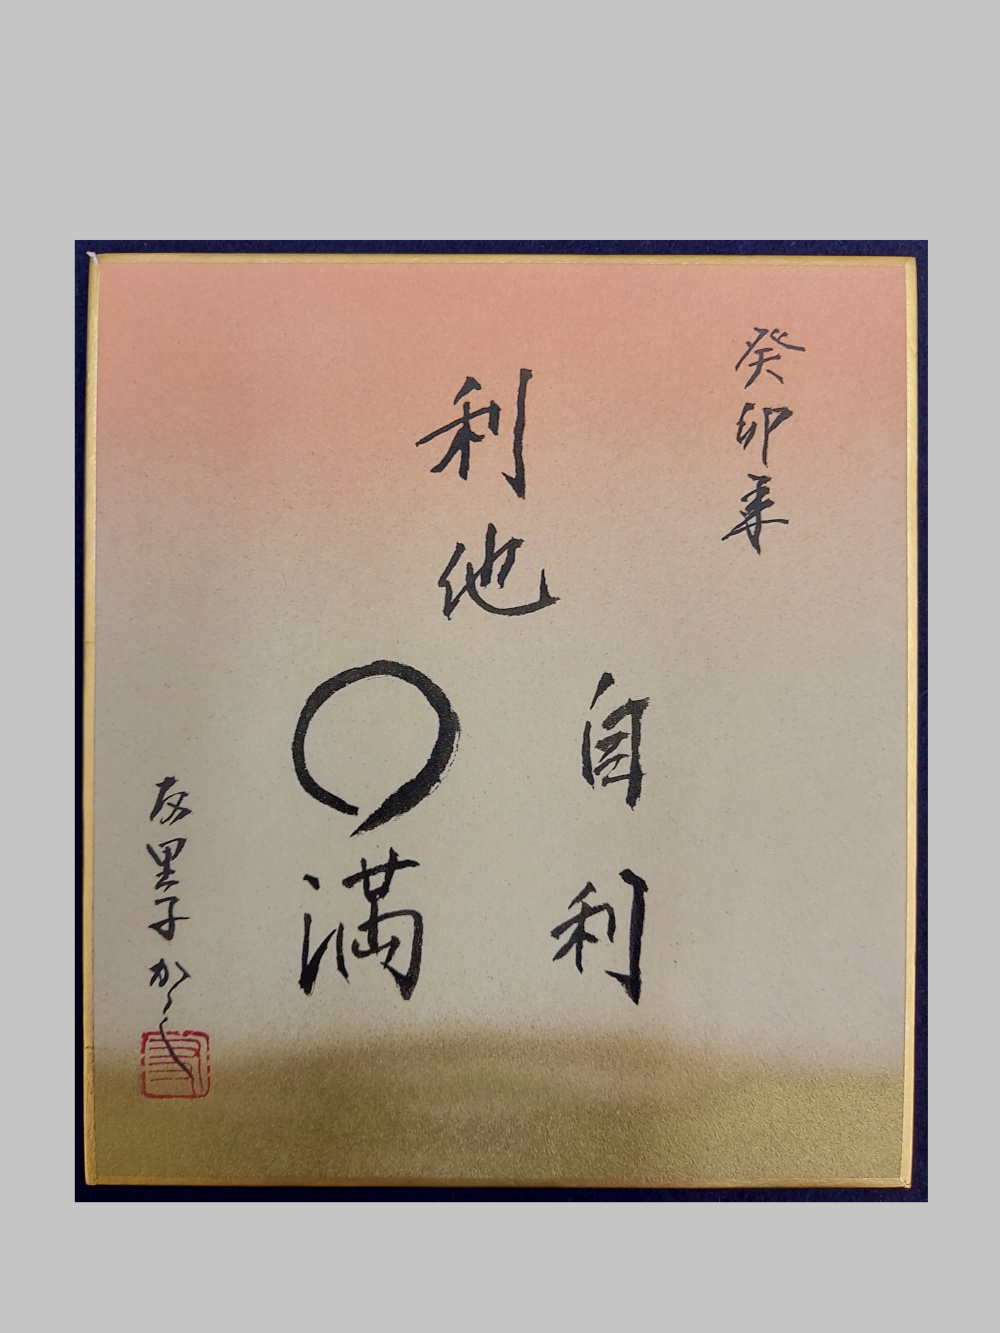 癸卯年
自利
利他
〇満
友里子かく